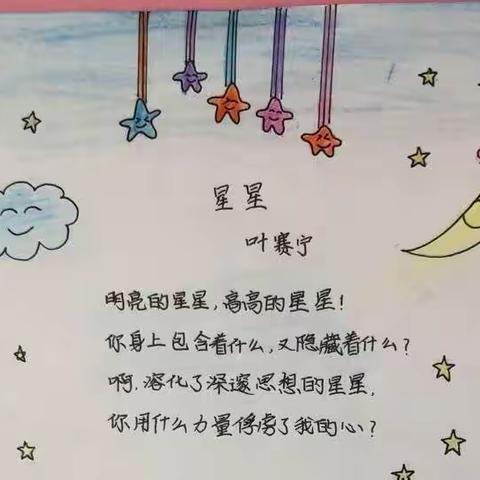 星星
叶赛宁
明亮的星星，高高的星星！
你身上包含着什么，又隐藏着什么？
啊，溶化了深邃思想的星星，
你用什么力量俘虏了我的心？